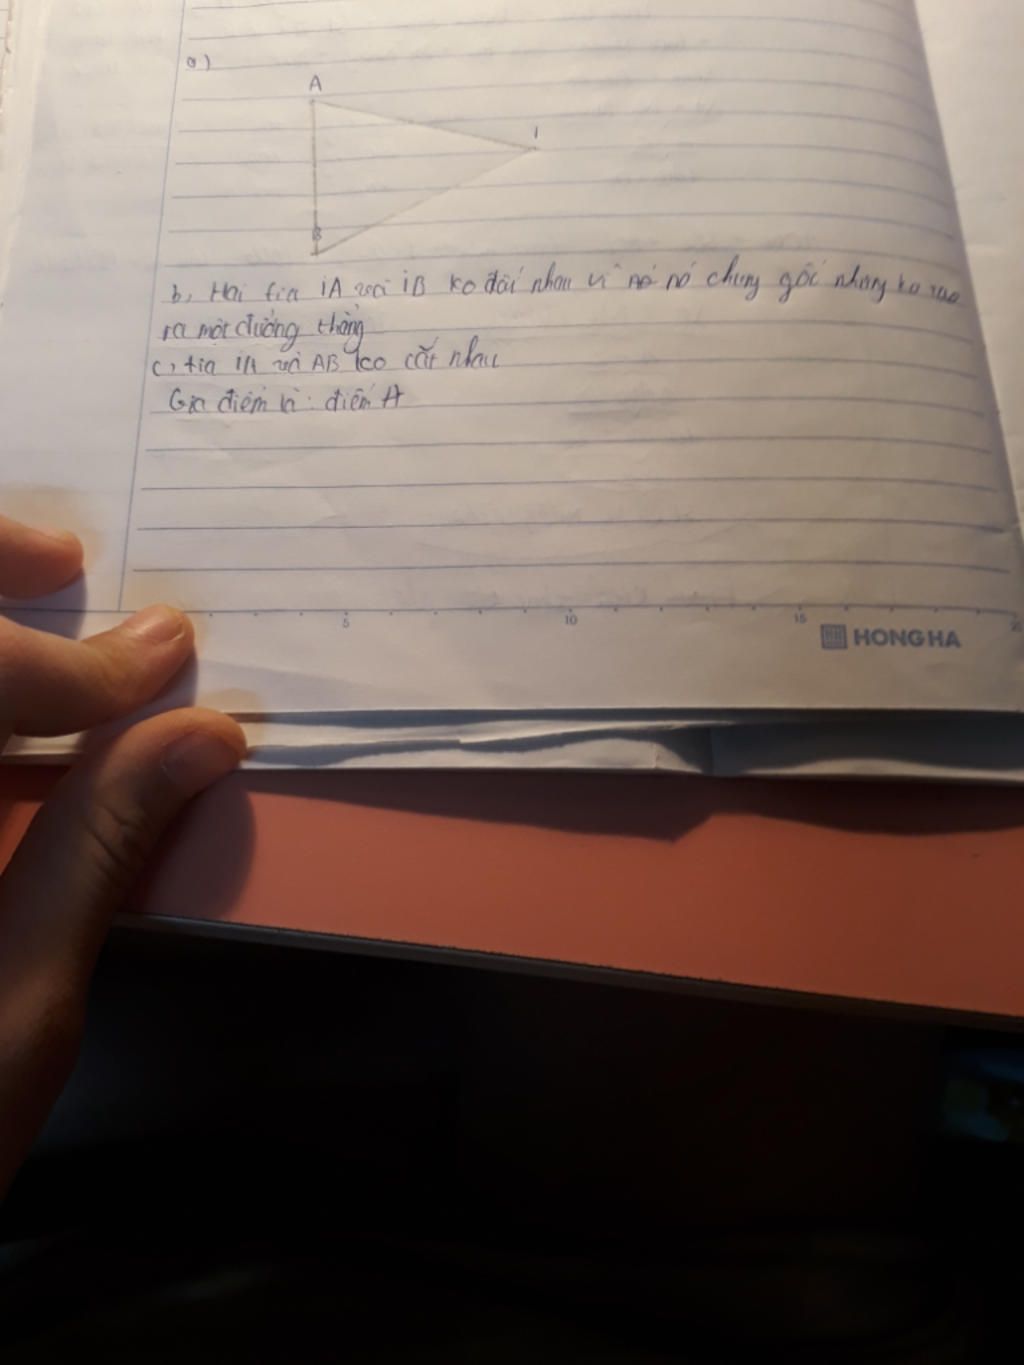 a)
A
I
B
b, Hai tia IA và IB ko đối nhau vì nó nó chung gốc nhưng ko tạo
ra một đường thẳng
c, tia IA và AB ko cắt nhau
Giao điểm là: điểm A
5 10 15 20
HONG HA